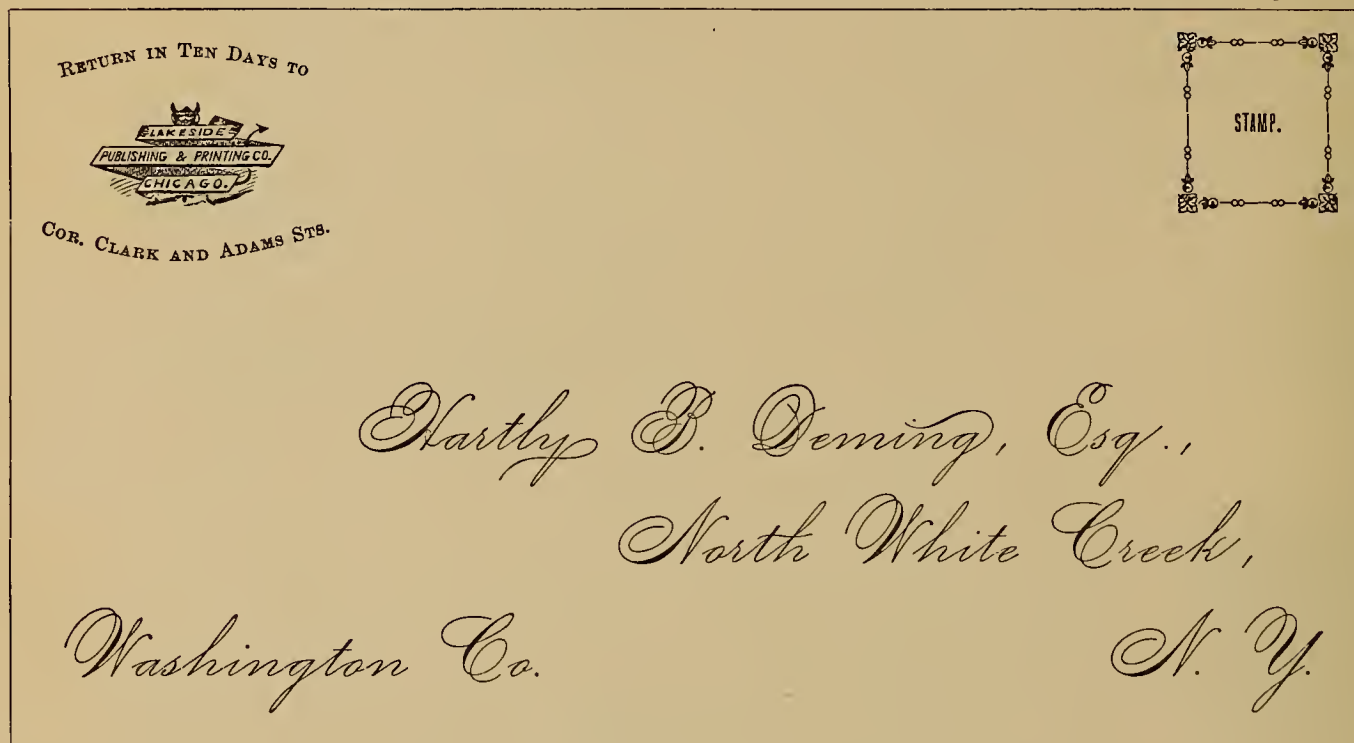 RETURN IN TEN DAYS TO
LAKESIDE
PUBLISHING & PRINTING CO.
CHICAGO.
COR. CLARK AND ADAMS STS.
STAMP.
Hartly B. Deming, Esq.,
North White Creek,
Washington Co. N. Y.